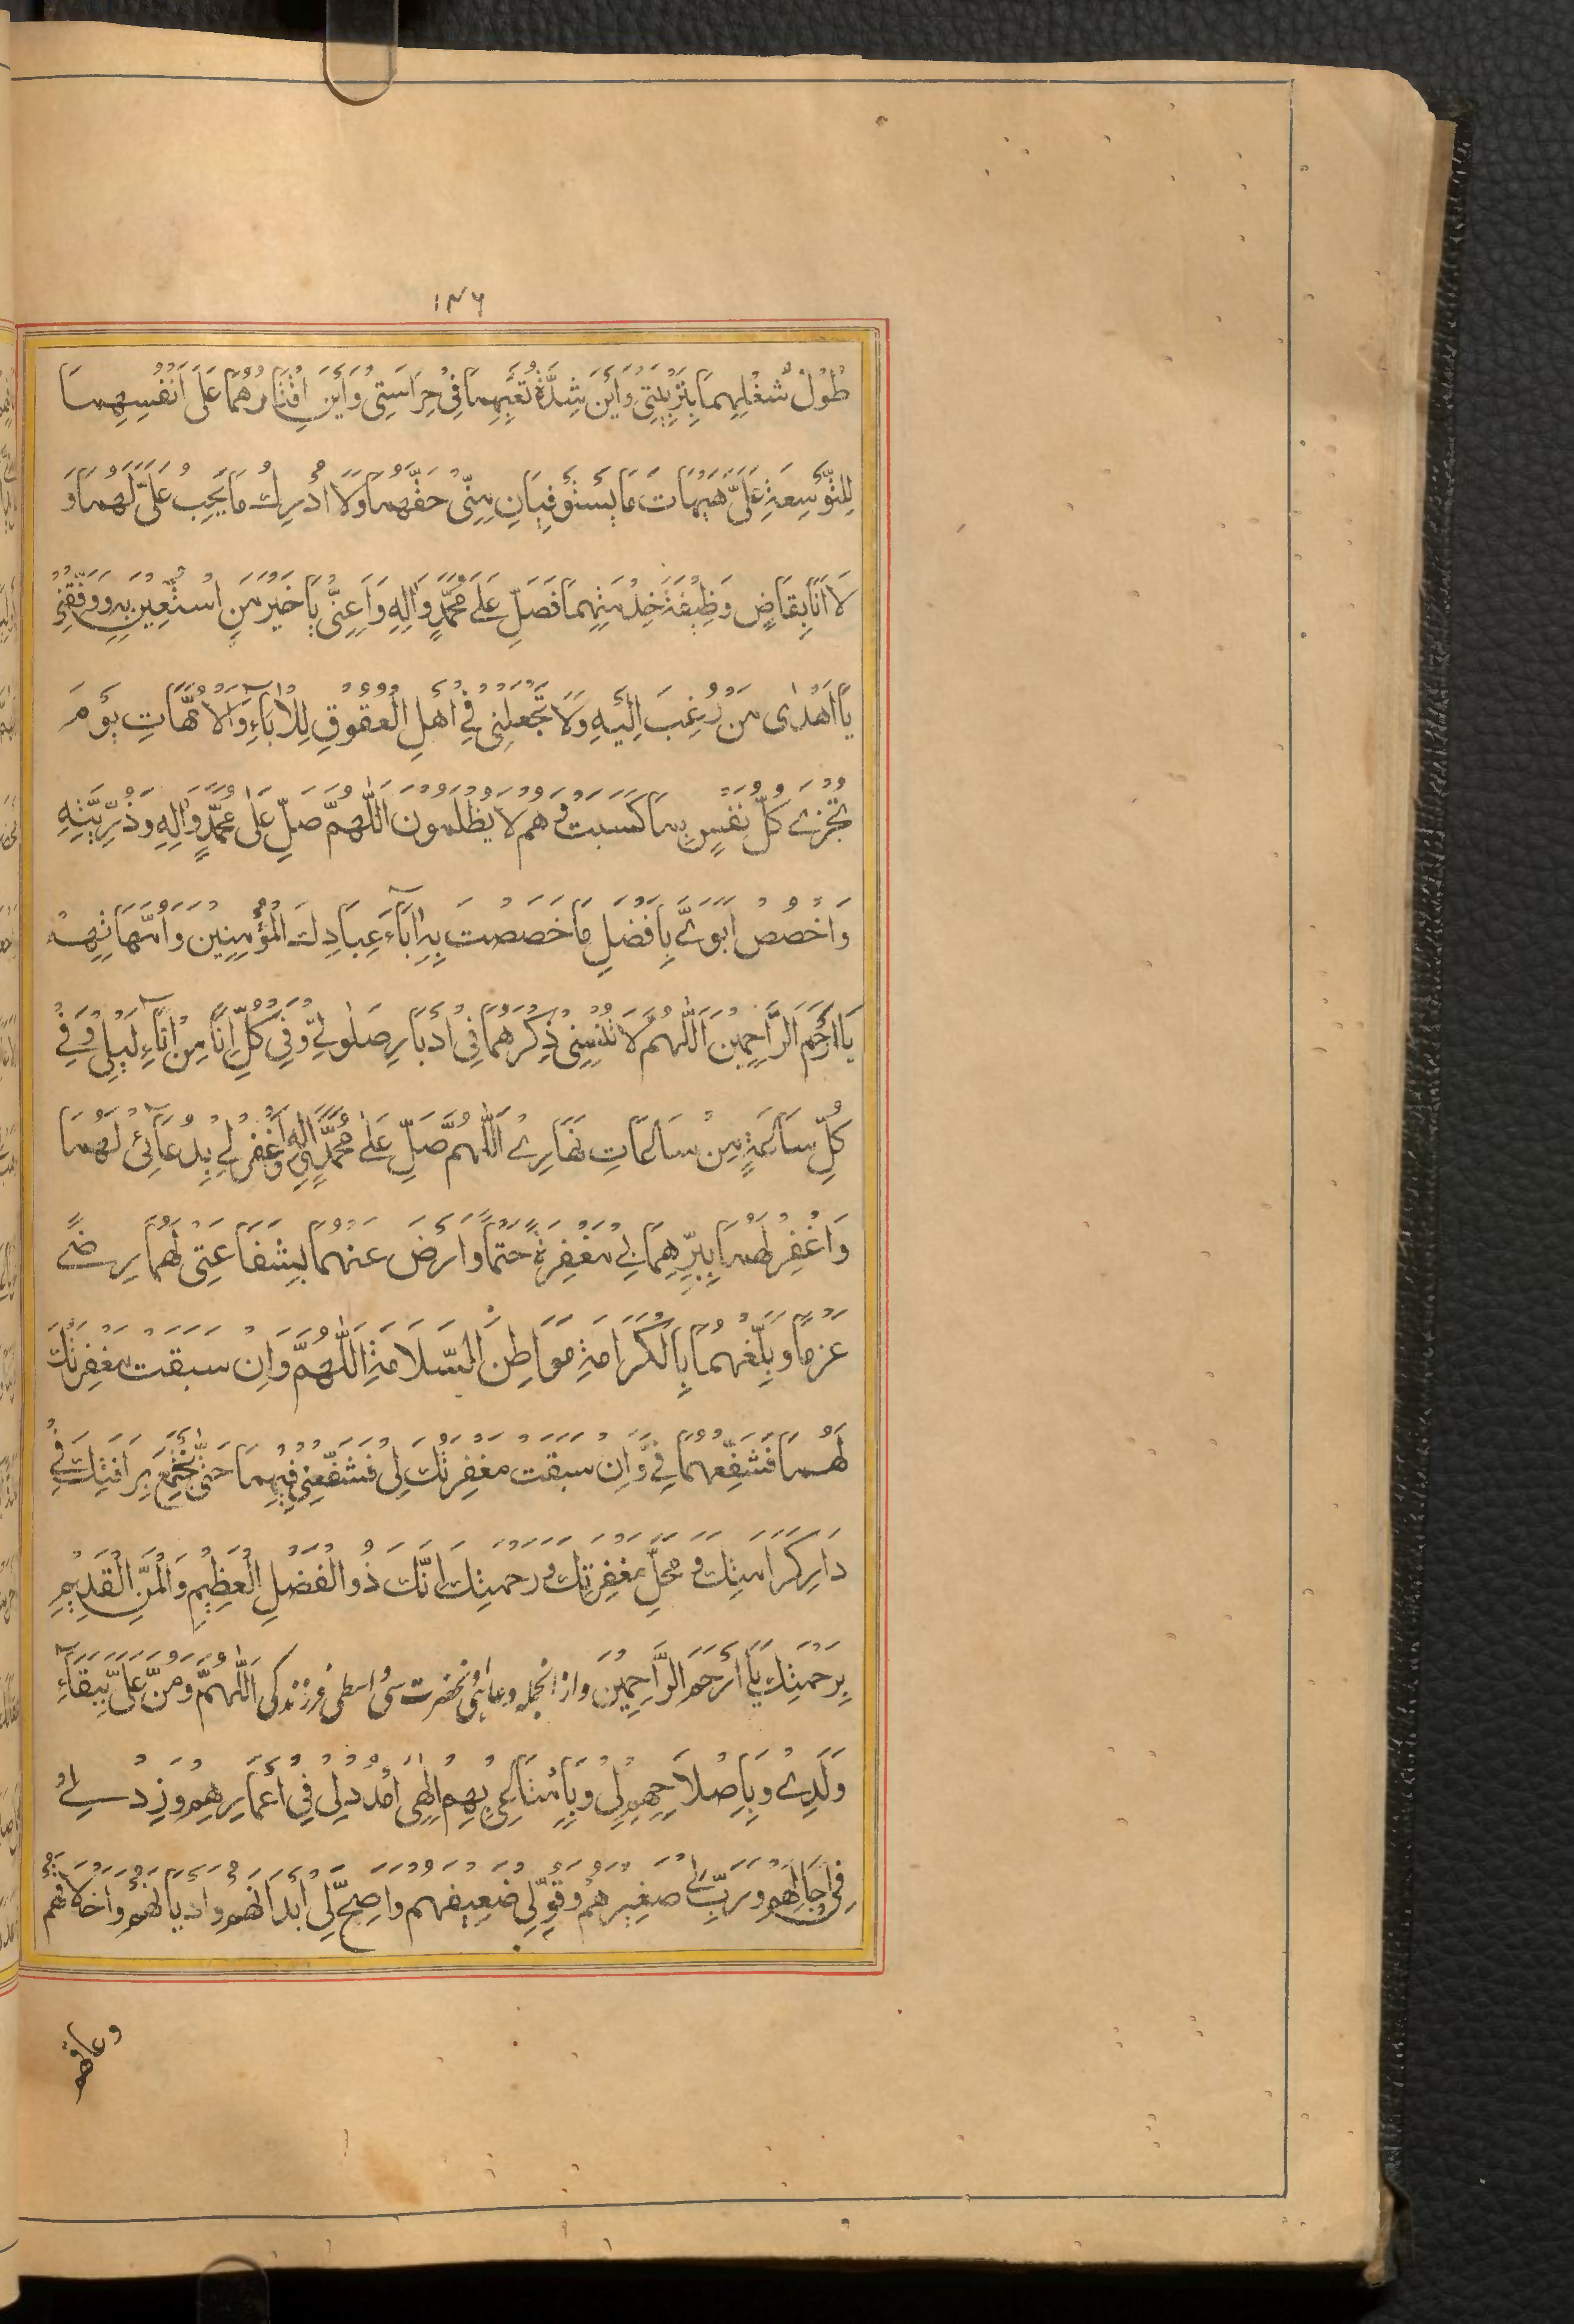 ١٣٦
طُوْلُ شُغْلِهِمَا بِتَرْبِيَتِيْ وَاَيْنَ شِدَّةُ تَعَبِهِمَا فِيْ حِرَاسَتِيْ وَاَيْنَ اِقْتَارُهُمَا عَلَى اَنْفُسِهِمَا
لِلتَّوْسِعَةِ عَلَيَّ هَيْهَاتَ مَا يَسْتَوْفِيَانِ مِنِّيْ حَقَّهُمَا وَلَا اُدْرِكُ مَا يَجِبُ عَلَيَّ لَهُمَا وَ
لَا اَنَا بِقَاضٍ وَظِيْفَةَ خِدْمَتِهِمَا فَصَلِّ عَلَى مُحَمَّدٍ وَاٰلِهِ وَاَعِنِّيْ يَا خَيْرَ مَنِ اسْتُعِيْنَ بِهِ وَوَفِّقْنِيْ
يَا اَهْدٰى مَنْ رُغِبَ اِلَيْهِ وَلَا تَجْعَلْنِيْ فِيْ اَهْلِ الْعُقُوْقِ لِلْاٰبَآءِ وَالْاُمَّهَاتِ يَوْمَ
تُجْزٰى كُلُّ نَفْسٍ بِمَا كَسَبَتْ وَهُمْ لَا يُظْلَمُوْنَ اَللّٰهُمَّ صَلِّ عَلٰى مُحَمَّدٍ وَاٰلِهِ وَذُرِّيَّتِهِ
وَاخْصُصْ اَبَوَيَّ بِاَفْضَلِ مَا خَصَصْتَ بِهِ اٰبَآءَ عِبَادِكَ الْمُؤْمِنِيْنَ وَاُمَّهَاتِهِمْ
يَا اَرْحَمَ الرَّاحِمِيْنَ اَللّٰهُمَّ لَا تُنْسِنِيْ ذِكْرَهُمَا فِيْ اَدْبَارِ صَلَوٰتِيْ وَفِيْ كُلِّ اِنًا مِنْ اٰنَآءِ لَيْلِيْ وَفِيْ
كُلِّ سَاعَةٍ مِنْ سَاعَاتِ نَهَارِيْ اَللّٰهُمَّ صَلِّ عَلٰى مُحَمَّدٍ وَاٰلِهِ وَاغْفِرْ لِيْ بِدُعَآئِيْ لَهُمَا
وَاغْفِرْ لَهُمَا بِبِرِّهِمَا بِيْ مَغْفِرَةً حَتْمًا وَارْضَ عَنْهُمَا بِشَفَاعَتِيْ لَهُمَا رِضًى
عَزْمًا وَبَلِّغْهُمَا بِالْكَرَامَةِ مَوَاطِنَ السَّلَامَةِ اَللّٰهُمَّ وَاِنْ سَبَقَتْ مَغْفِرَتُكَ
لَهُمَا فَشَفِّعْهُمَا فِيَّ وَاِنْ سَبَقَتْ مَغْفِرَتُكَ لِيْ فَشَفِّعْنِيْ فِيْهِمَا حَتّٰى نَجْتَمِعَ بِرَافَتِكَ فِيْ
دَارِ كَرَامَتِكَ وَ مَحَلِّ مَغْفِرَتِكَ وَ رَحْمَتِكَ اِنَّكَ ذُو الْفَضْلِ الْعَظِيْمِ وَالْمَنِّ الْقَدِيْمِ
بِرَحْمَتِكَ يَا اَرْحَمَ الرَّاحِمِيْنَ واز انجمله دعائی انحضرت سی واسطی فرزند کی اَللّٰهُمَّ وَمُنَّ عَلَيَّ بِبَقَآءِ
وَلَدِيْ وَبِاِصْلَاحِهِمْ لِيْ وَبِاِمْتَاعِيْ بِهِمْ اِلٰهِيْ اُمْدُدْ لِيْ فِيْ اَعْمَارِهِمْ وَزِدْ لِيْ
فِيْ اٰجَالِهِمْ وَرَبِّ لِيْ صَغِيْرَهُمْ وَقَوِّ لِيْ ضَعِيْفَهُمْ وَاَصِحَّ لِيْ اَبْدَانَهُمْ وَاَدْيَانَهُمْ وَاَخْلَاقَهُمْ
وعافهم